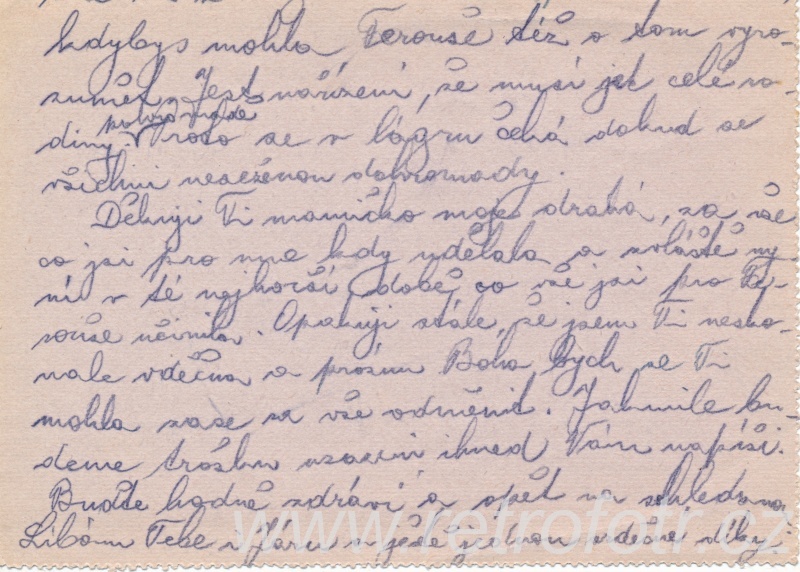 kdybys mohla Ferouše též o tom vyro-
zumět. Jest nařízení, že musí jet celé ro-
pohromadě
diny. Proto se v lágru čeká dokud se
všichni neseženou dohromady.
Děkuji Ti mamičko moje drahá, za vše
co jsi pro mne kdy udělala a zvláště ny-
ní v té nejhorší době, co vše jsi pro Fe-
rouše učinila. Opakuji stále, že jsem Ti nesko-
nale vděčna a prosím Boha bych se Ti
mohla zase za vše odměnit. Jakmile bu-
deme trošku usazeni ihned Vám napíši.
Buďte hodně zdrávi a opět na shledanou
Líbám Tebe i Járu a ještě jednou vděčné díky
www.retrofotr.cz